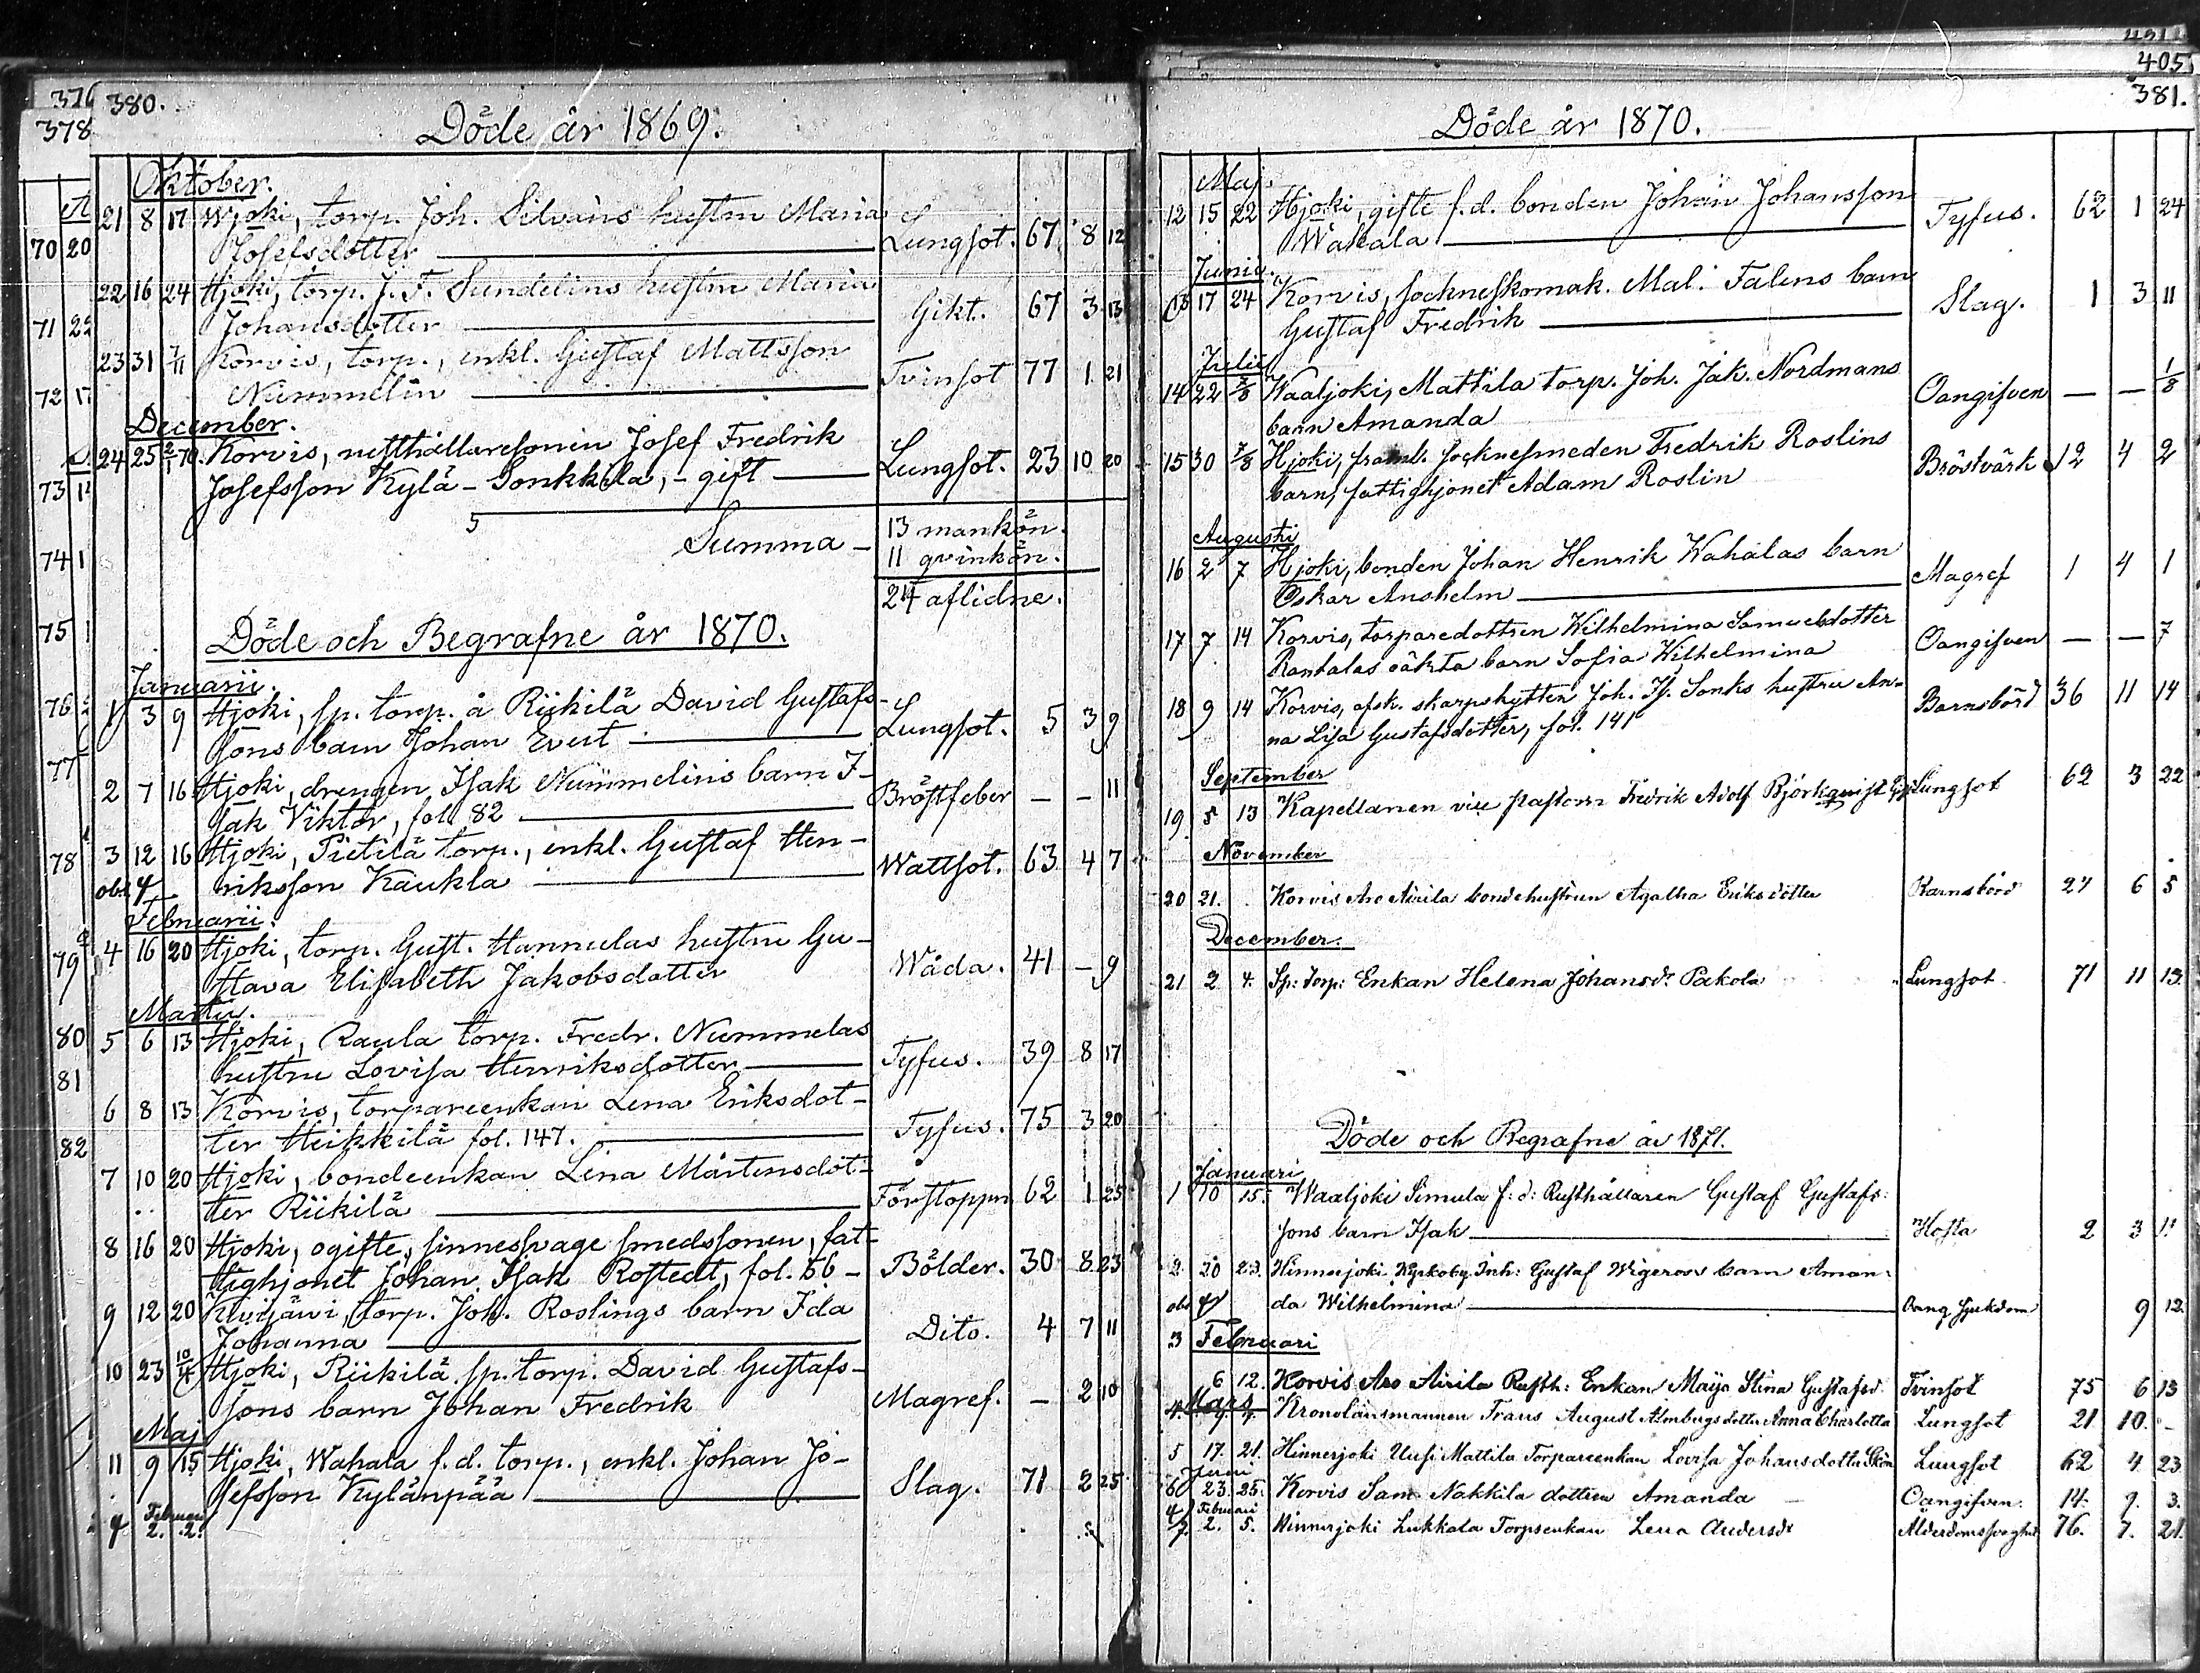 376 380.
378
Döde år 1869.
Oktober.
21 8 17 Wjoki, torp. Joh. Silvains hustru Maria
Josefsdotter Lungsot. 67 8 12
22 16 24 Hjoki, torp. J. F. Sundelins hustru Maria
Johansdotter Gikt. 67 3 13
23 31 7/11 Korvis, torp., enkl. Gustaf Mattsson
Nummelin Tvinsot 77 1 21
December.
24 25 2/1 70. Korvis, rusthållaresonen Josef Fredrik
Josefsson Kylä-Sonkkila, - gift Lungsot. 23 10 20
Summa - 13 mankön.
11 qvinkön.
24 aflidne.
Döde och Begrafne år 1870.
Januarii.
1 3 9 Hjoki, sp. torp. å Riikilä David Gustafs-
sons barn Johan Evert Lungsot. 5 3 9
2 7 16 Hjoki, drengen Isak Nummelins barn I-
sak Viktor, fol. 82 Bröstfeber - - 11
3 12 16 Hjoki, Pietilä torp., enkl. Gustaf Hen-
obs 4 riksson Kaukla Wattsot. 63 4 7
Februarii.
4 16 20 Hjoki, torp. Gust. Hannulas hustru Gu-
stava Elisabeth Jakobsdotter Wåda. 41 - 9
Martii.
5 6 13 Hjoki, Raula torp. Fredr. Nummelas
hustru Lovisa Henriksdotter Tyfus. 39 8 17
6 8 13 Korvis, torpareenkan Lena Eriksdot-
ter Heikkilä fol. 147. Tyfus. 75 3 20
7 10 20 Hjoki, bondeenkan Lena Mårtensdot-
ter Riikilä Förstoppn 62 1 25
8 16 20 Hjoki, ogifte, sinnessvage smedssonen, fat-
tighjonet Johan Isak Rostedt, fol. 56 - Bölder. 30 8 23
9 12 20 torp. Joh. Roslings barn Ida
Johanna Dito. 4 7 11
10 23 10/4 Hjoki, Riikilä sp. torp. David Gustafs-
sons barn Johan Fredrik Magref. - 2 10
Maj
11 9 15 Hjoki, Wahala f.d. torp., enkl. Johan Jo-
sefsson Kylänpää Slag. 71 2 25
4 Februari 2. 2.
70 20
71 22
72 17
73
74 1
75 1
76
77
78
79
80
81
82
405
381.
Döde år 1870.
Maj.
12 15 22 Hjoki, gifte f.d. bonden Johan Johansson
Wahala Tyfus. 62 1 24
Junii.
13 17 24 Korvis, sockneskomak. Mal. Falens barn
Gustaf Fredrik Slag. 1 3 11
Julii
14 22 7/8 Waaljoki, Mattila torp. Joh. Jak. Nordmans
barn Amanda Oangifven - - 1/8
15 30 7/8 Hjoki, framl. socknesmeden Fredrik Roslins
barn, fattighjonet Adam Roslin Bröstvärk 12 4 2
Augusti
16 2 7 Hjoki, bonden Johan Henrik Wahalas barn
Oskar Anshelm Magref 1 4 1
17 7 14 Korvis, torparedottren Wilhelmina Samuelsdotter
Rantalas oäkta barn Sofia Wilhelmina Oangifven - - 7
18 9 14 Korvis, afsk. skarpskytten Joh. Is. Sonks hustru An-
na Lisa Gustafsdotter, fol. 141 Barnsbörd 36 11 14
September
19 5 13 Kapellanen vice pastorn Fredrik Adolf Björkqvist Gift Lungsot 62 3 22
November
20 21. Korvis Aro Airila bondehustrun Agatha Eriksdotter Barnsbörd 27 6 5
December.
21 2 4. Sp: torp: Enkan Helena Johansdr. Pakola Lungsot 71 11 13.
Döde och Begrafne år 1871.
Januari
1 10 15. Waaljoki Simula f:d: Rusthållaren Gustaf Gustafs:
sons barn Isak Hosta 2 3 11
2 20 23. Hinnerjoki Kyrkoby Inh: Gustaf Wigeross barn Aman:
obs 4 da Wilhelmina Oang Sjukdom 9 12.
3 Februari
6 12. Korvis Aro Airila Rusth: Enkan Maija Stina Gustafsd. Tvinsot 75 6 13
4. Kronolänsmannen Frans August Almbergs dotter Anna Charlotta Lungsot 21 10. -
5 17. 21. Hinnerjoki Uusi Mattila Torpareenkan Lovisa Johansdotter Lungsot 62 4 23
Junii
6 23. 25. Korvis Sam. Nakkila dottren Amanda Oangifven. 14. 9. 3.
4 Februari
7. 2. 5. Hinnerjoki Lukkala Torpsenkan Lena Andersdr Ålderdomssvaghet 76. 7. 21.